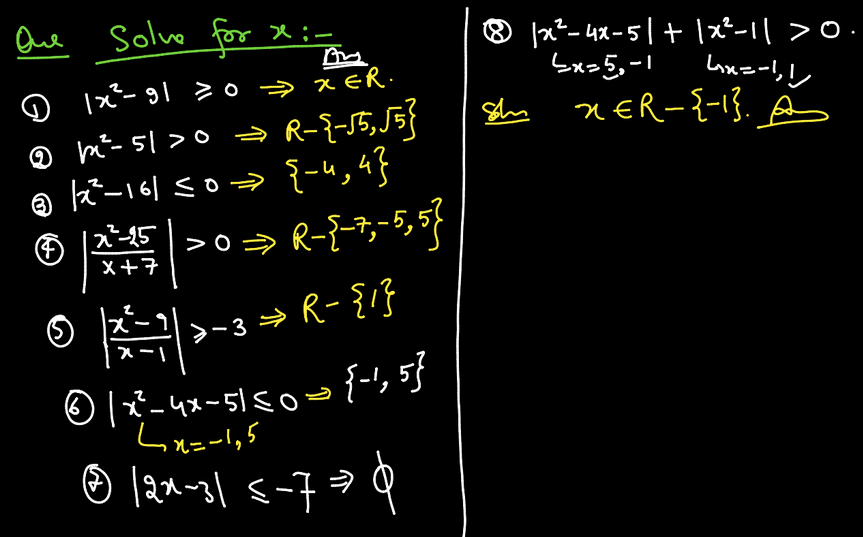 Que Solve for x :-
Ans
① |x²-9| ≥ 0 ⇒ x ∈ R.
② |x²-5| > 0 ⇒ R-{-√5, √5}
③ |x²-16| ≤ 0 ⇒ {-4, 4}
④ |(x²-25)/(x+7)| > 0 ⇒ R-{-7, -5, 5}
⑤ |(x²-9)/(x-1)| ≥ -3 ⇒ R-{1}
⑥ |x²-4x-5| ≤ 0 ⇒ {-1, 5}
↳ x=-1, 5
⑦ |2x-3| ≤ -7 ⇒ ϕ
⑧ |x²-4x-5| + |x²-1| > 0.
↳ x=5, -1 ↳ x=-1, 1
Soln x ∈ R-{-1}. Ans